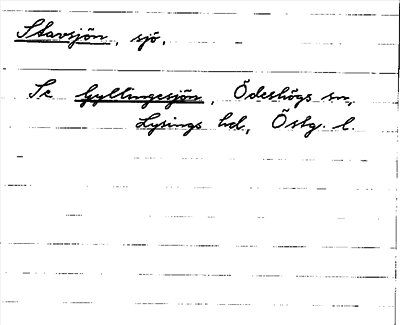 Stavsjön, sjö.
Se Gyllingesjön, Ödeshögs sn,
Lysings hd, Östg. l.